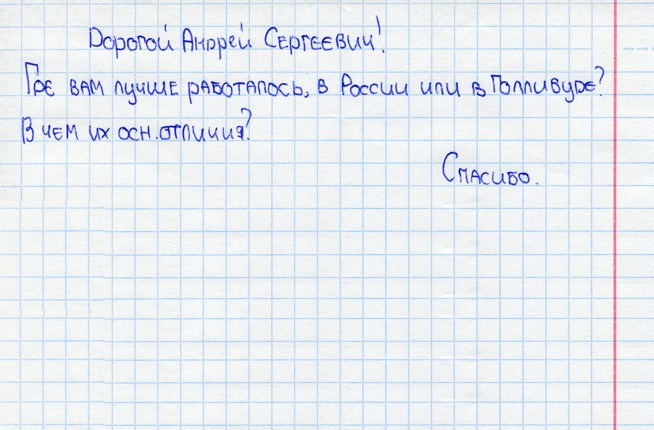 Дорогой Андрей Сергеевич!
Где вам лучше работалось, в России или в Голливуде?
В чем их осн. отличия?
Спасибо.